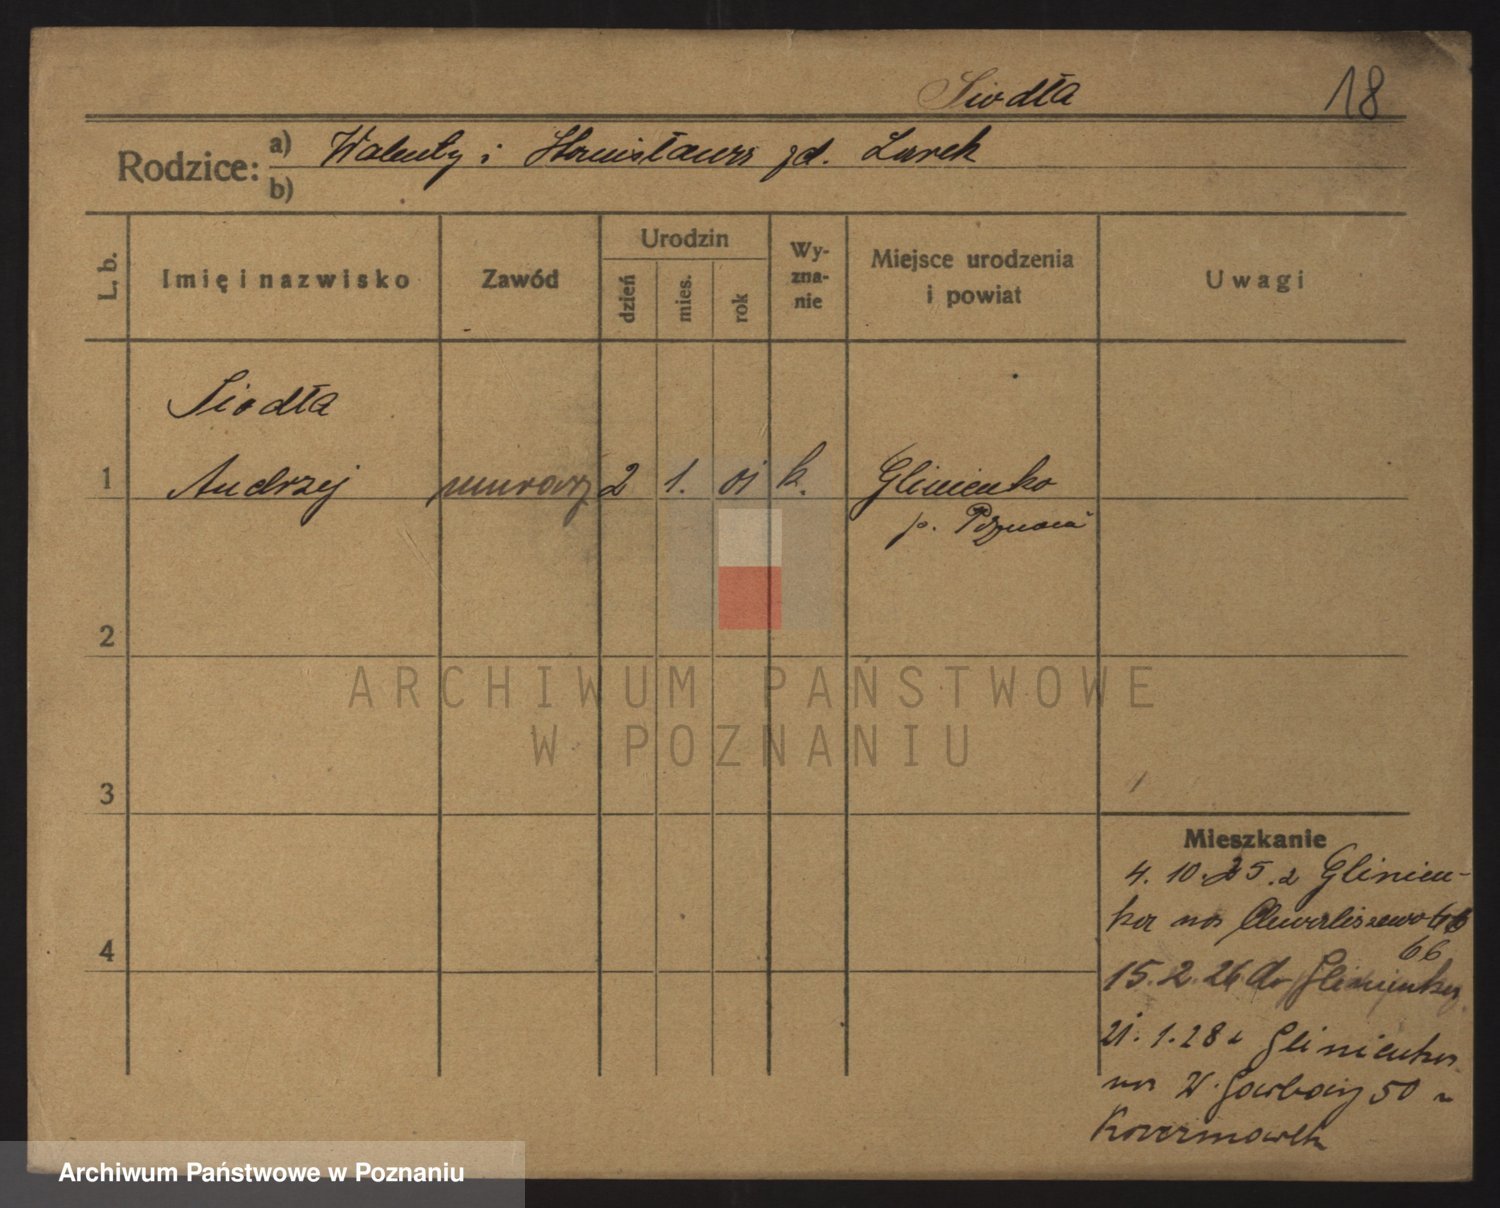 Siodła
18
Rodzice:
a) Walenty i Stanisława zd. Lurek
b)
L. b.
Imię i nazwisko
Zawód
Urodzin
dzień
mies.
rok
Wy-
zna-
nie
Miejsce urodzenia
i powiat
Uwagi
Siodła
1 Andrzej murarz 2 1. 01 k. Glinienko
p. Poznań
2
3
4
Mieszkanie
4. 10. 25. z Glinien-
ka na Chwaliszewo 66
66
15. 2. 26 do Glinienka
21. 1. 28 z Glinienka
na W. Garbary 50 u
ARCHIWUM PAŃSTWOWE
W POZNANIU
Archiwum Państwowe w Poznaniu